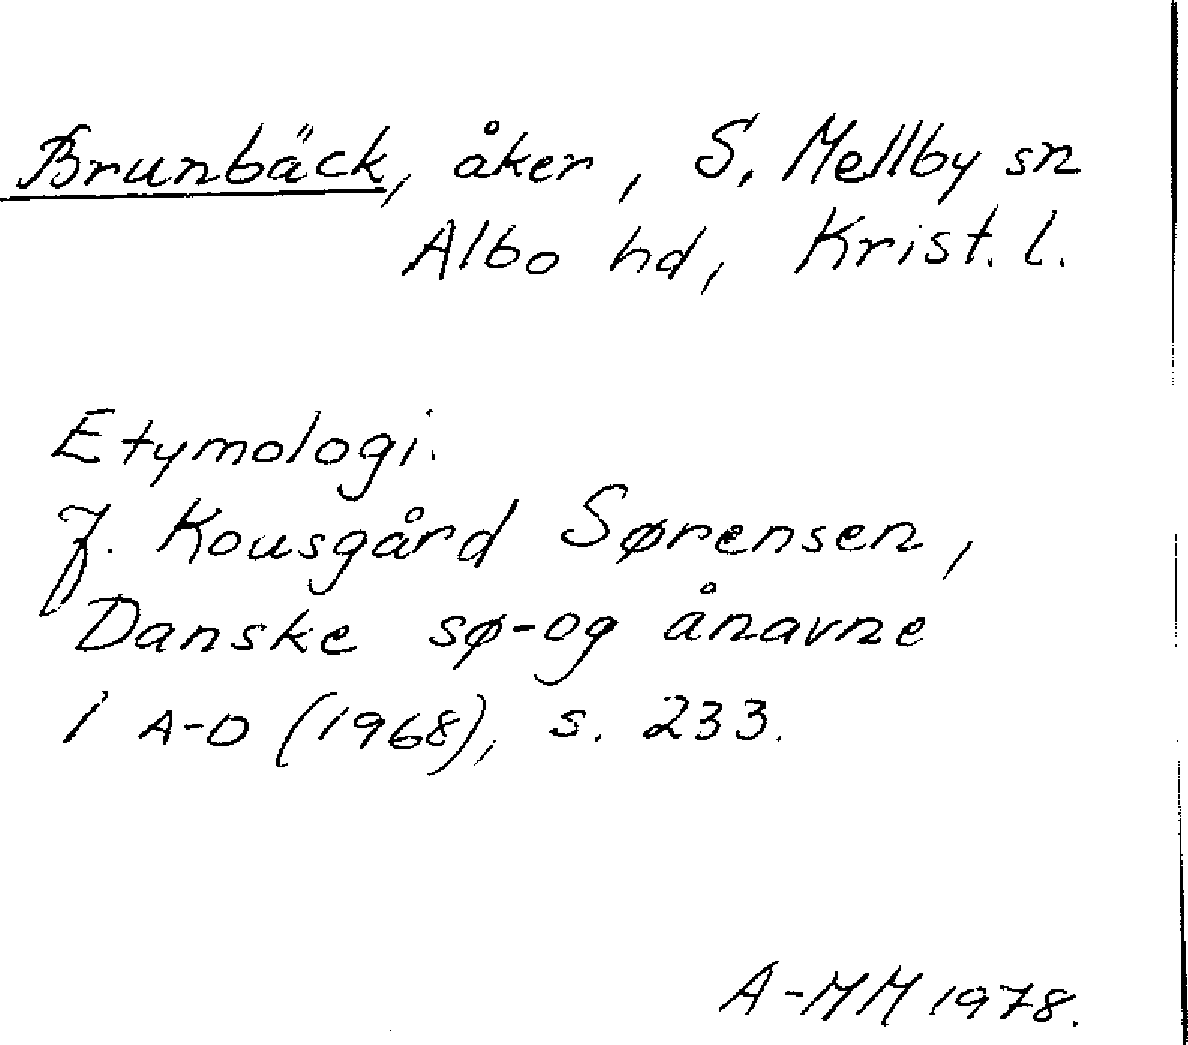 Brunbäck, åker, S. Mellby sn
Albo hd, Krist. l.
Etymologi.
J. Kousgård Sørensen,
Danske sø-og ånavne
1 A-D (1968), s. 233.
A-MM 1978.